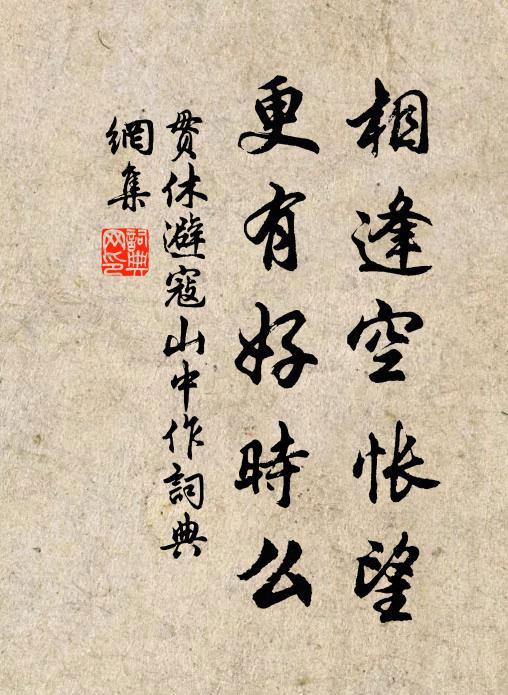 相逢空悵望
更有好時么
貫休避寇山中作詞典
網集
詞典
网印